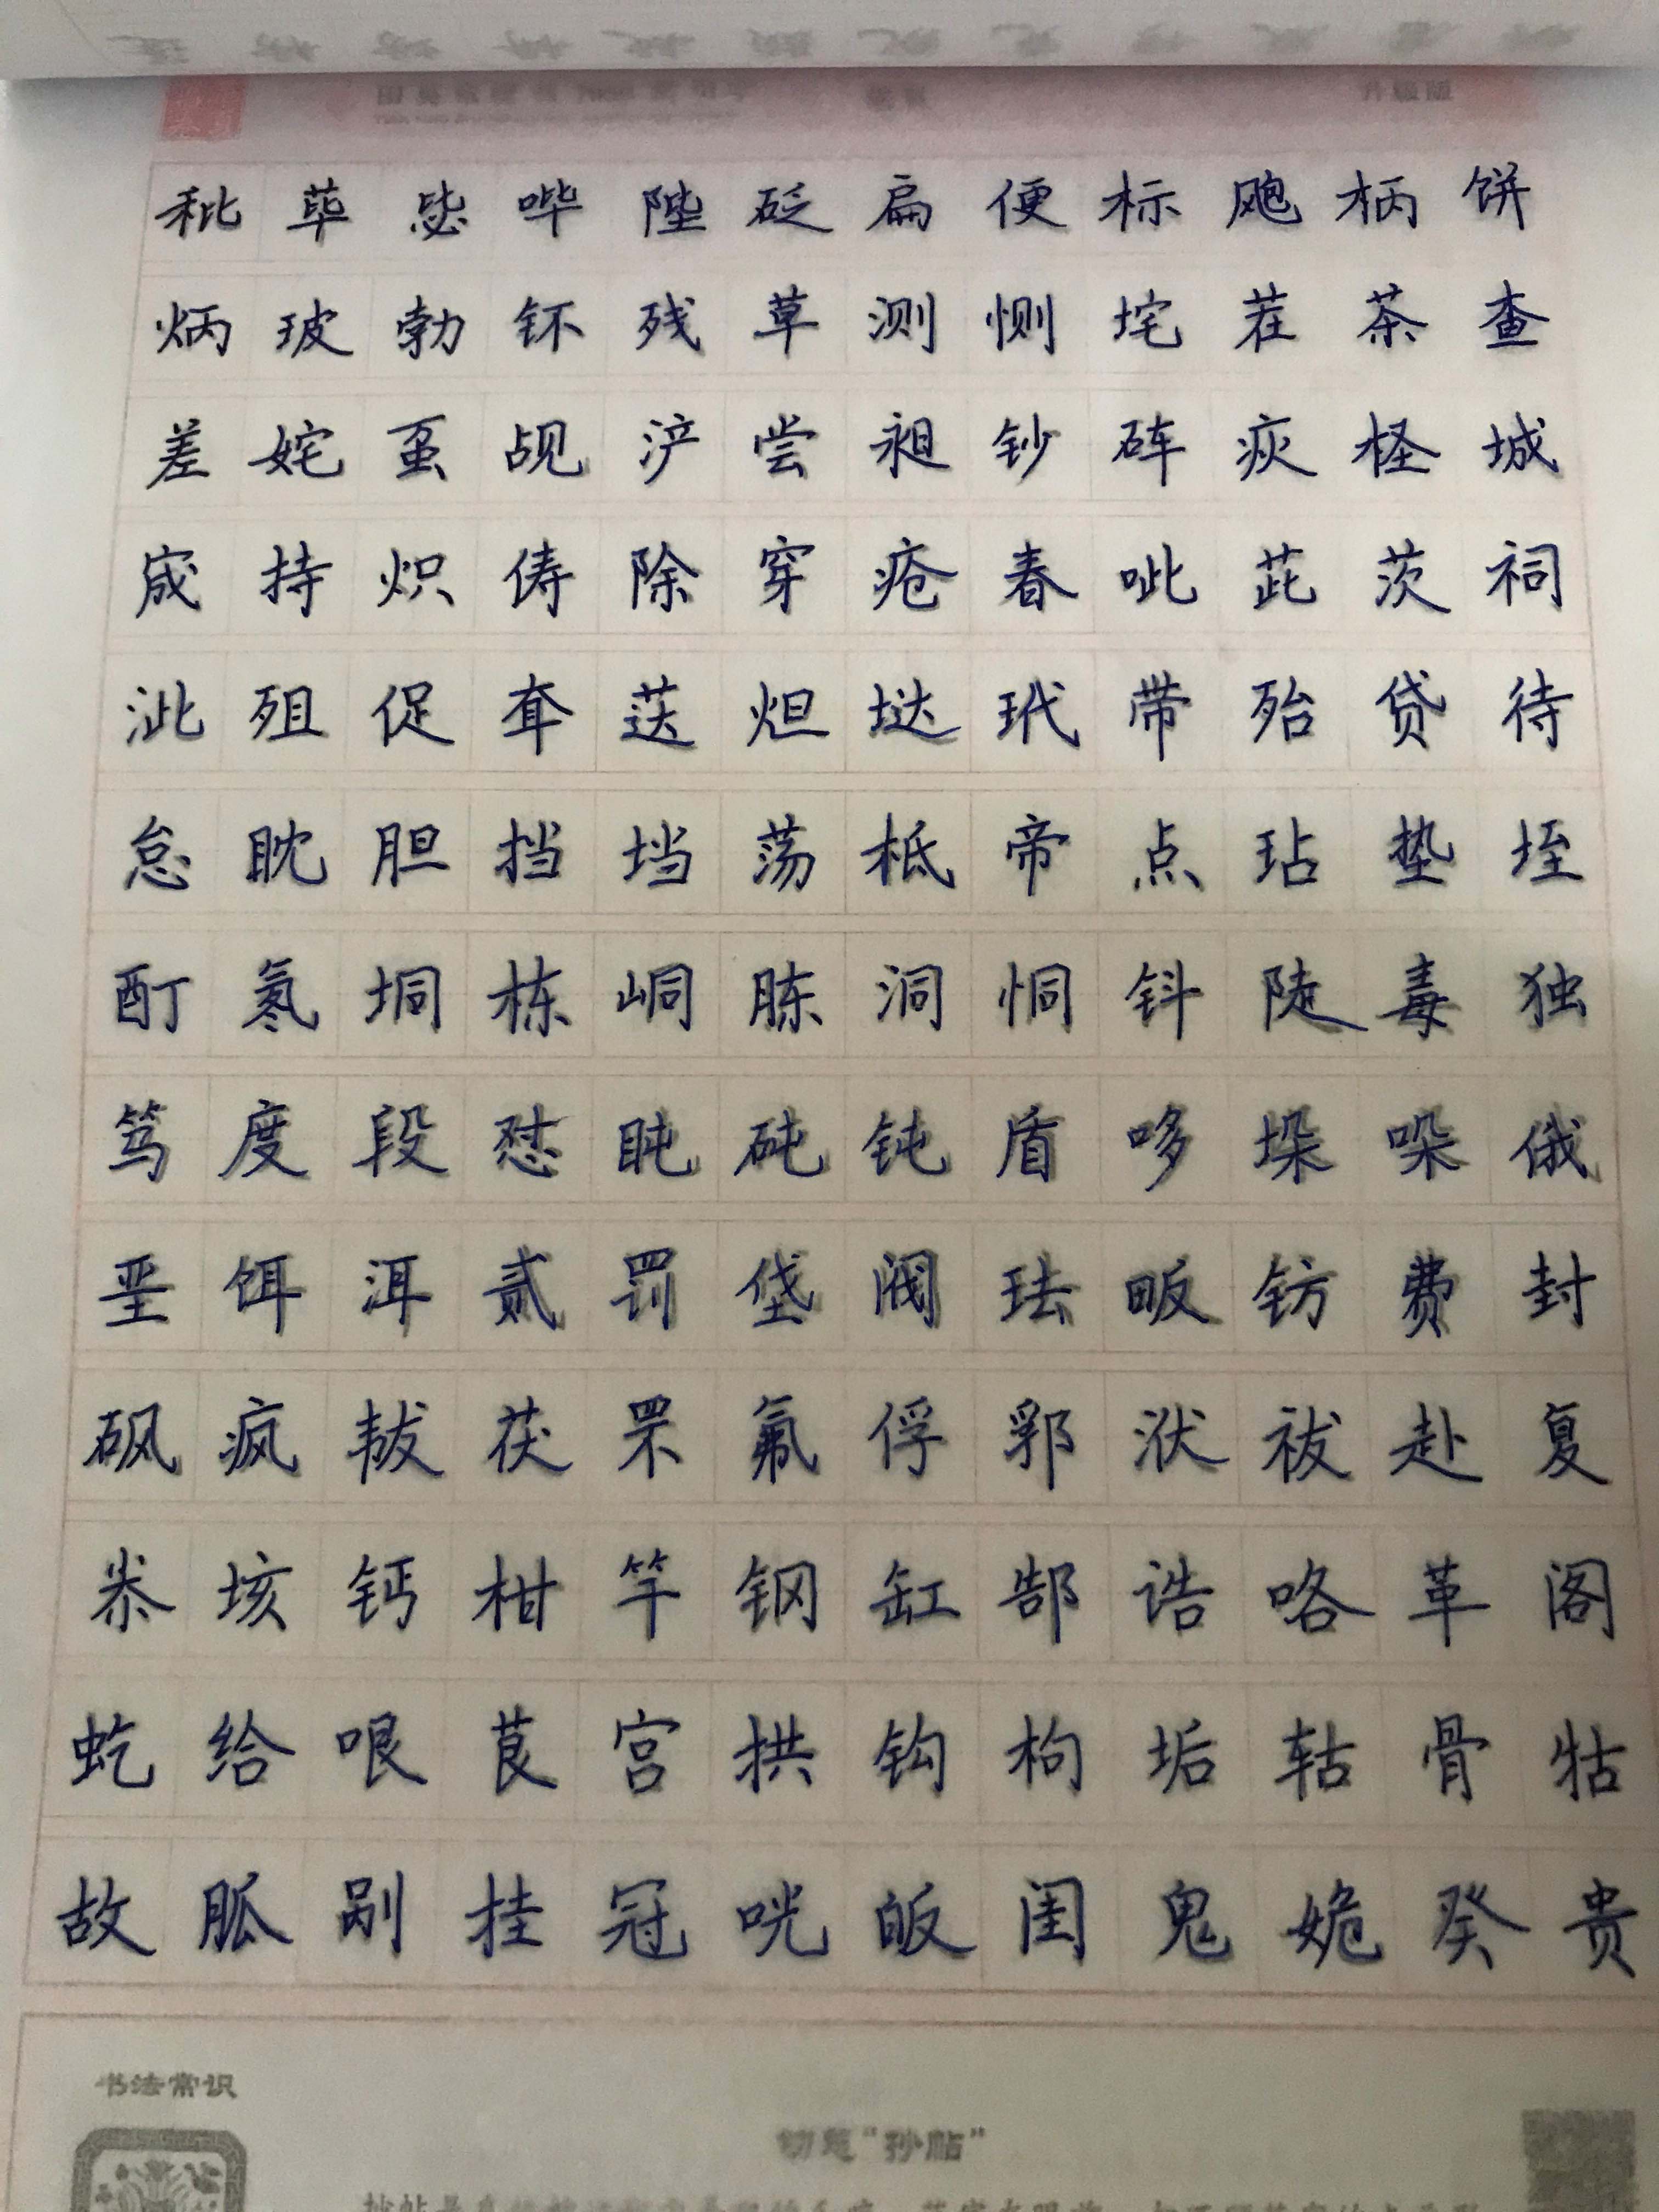 秕荜毖哔陛砭扁便标飑柄饼
炳玻勃钚残草测恻垞茬茶查
差姹虿觇浐尝昶钞砗疢柽城
宬持炽俦除穿疮春呲茈茨祠
泚殂促耷荙炟垯玳带殆贷待
怠眈胆挡垱荡柢帝点玷垫垤
酊氡垌栋峒胨洞恫钭陡毒独
笃度段怼盹砘钝盾哆垛哚俄
垩饵洱贰罚垡阀珐畈钫费封
砜疯韨茯罘氟俘郛洑祓赴复
尜垓钙柑竿钢缸郜诰咯革阁
虼给哏茛宫拱钩枸垢轱骨牯
故胍剐挂冠咣皈闺鬼姽癸贵
书法常识